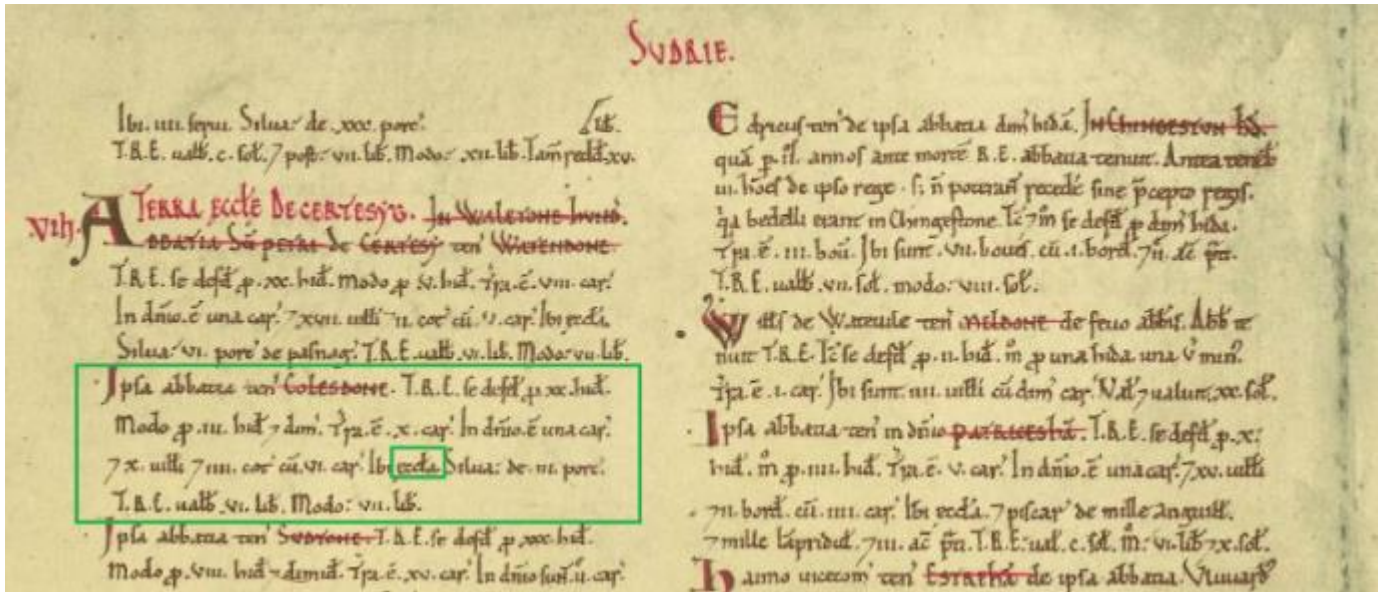 SUDRIE.
Ibi. IIII. serui. Silua: de. xxx. porc'.
T.R.E. ualb. c. sol'. 7 post: VII. lib'. Modo: XII. lib'. Tam' redd'. xv. lib'.
VIII. TERRA ECCLE DE CERTESYG. IN WALETONE HUND'.
ABBATIA SCI PETRI de CERTESY ten' WATENDONE.
T.R.E. se defd' p. xx. hid'. Modo p V. hid'. Tra. ē. VIII. car'.
In dnio. ē una car'. 7 XVII. uilli 7 II. cot' cū. V. car'. Ibi eccla.
Silua: VI. porc' de pasnag'. T.R.E. ualb. VI. lib. Modo: VII. lib.
Ipsa abbatia ten' COLESDONE. T.R.E. se defd' p. xx. hid'.
Modo p. III. hid' 7 dim'. Tra. ē. x. car'. In dnio. ē una car'.
7 x. uilli 7 IIII. cot' cū. VI. car'. Ibi eccla. Silua: de. III. porc'.
T.R.E. ualb. VI. lib. Modo: VII. lib.
Ipsa abbatia ten' SUDTONE. T.R.E. se defd' p. xxx. hid'.
Modo p. VIII. hid' 7 dimid'. Tra. ē. xv. car'. In dnio sunt. II. car'.
Edricus ten' de ipsa abbatia dim' hidā. IN CHINGESTUN HD'.
quā p. II. annos ante mortē R.E. abbatia tenuit. Antea teneb'
III. hoēs de ipso rege. s; n̄ poteran̄ recedē sine p̄cepto regis.
q̄a bedelli erant in Chingestone. Tc̄ 7 m̄ se defd' p dim' hida.
Tra. ē. III. boū. Ibi sunt. VII. boues. cū. I. bord'. 7 II. ac̄ p̄ti.
T.R.E. ualb. VII. sol'. modo: VIII. sol'.
Wills de Wateuile ten' MELDONE de feuo abb̄is. Abb' te
nuit T.R.E. Tc̄ se defd' p. II. hid'. m̄ p una hida una V min'.
Tra ē. I. car'. Ibi sunt. IIII. uilli cū dim' car'. Val' 7 ualuit. xx. sol'.
Ipsa abbatia ten' in dnio PATRICESHĀ. T.R.E. se defd' p. x:
hid'. m̄ p. IIII. hid'. Tra ē. V. car'. In dnio. ē una car'. 7 xv. uilli
7 II. bord'. cū. IIII. car'. Ibi eccla. 7 piscar' de mille anguill'.
7 mille lāpridul'. 7 III. ac̄ p̄ti. T.R.E. ual'. c. sol'. m̄: VI. lib' 7 x. sol'.
Hamo uicecom' ten' ESTREHĀ de ipsa abbatia. Vluuard'